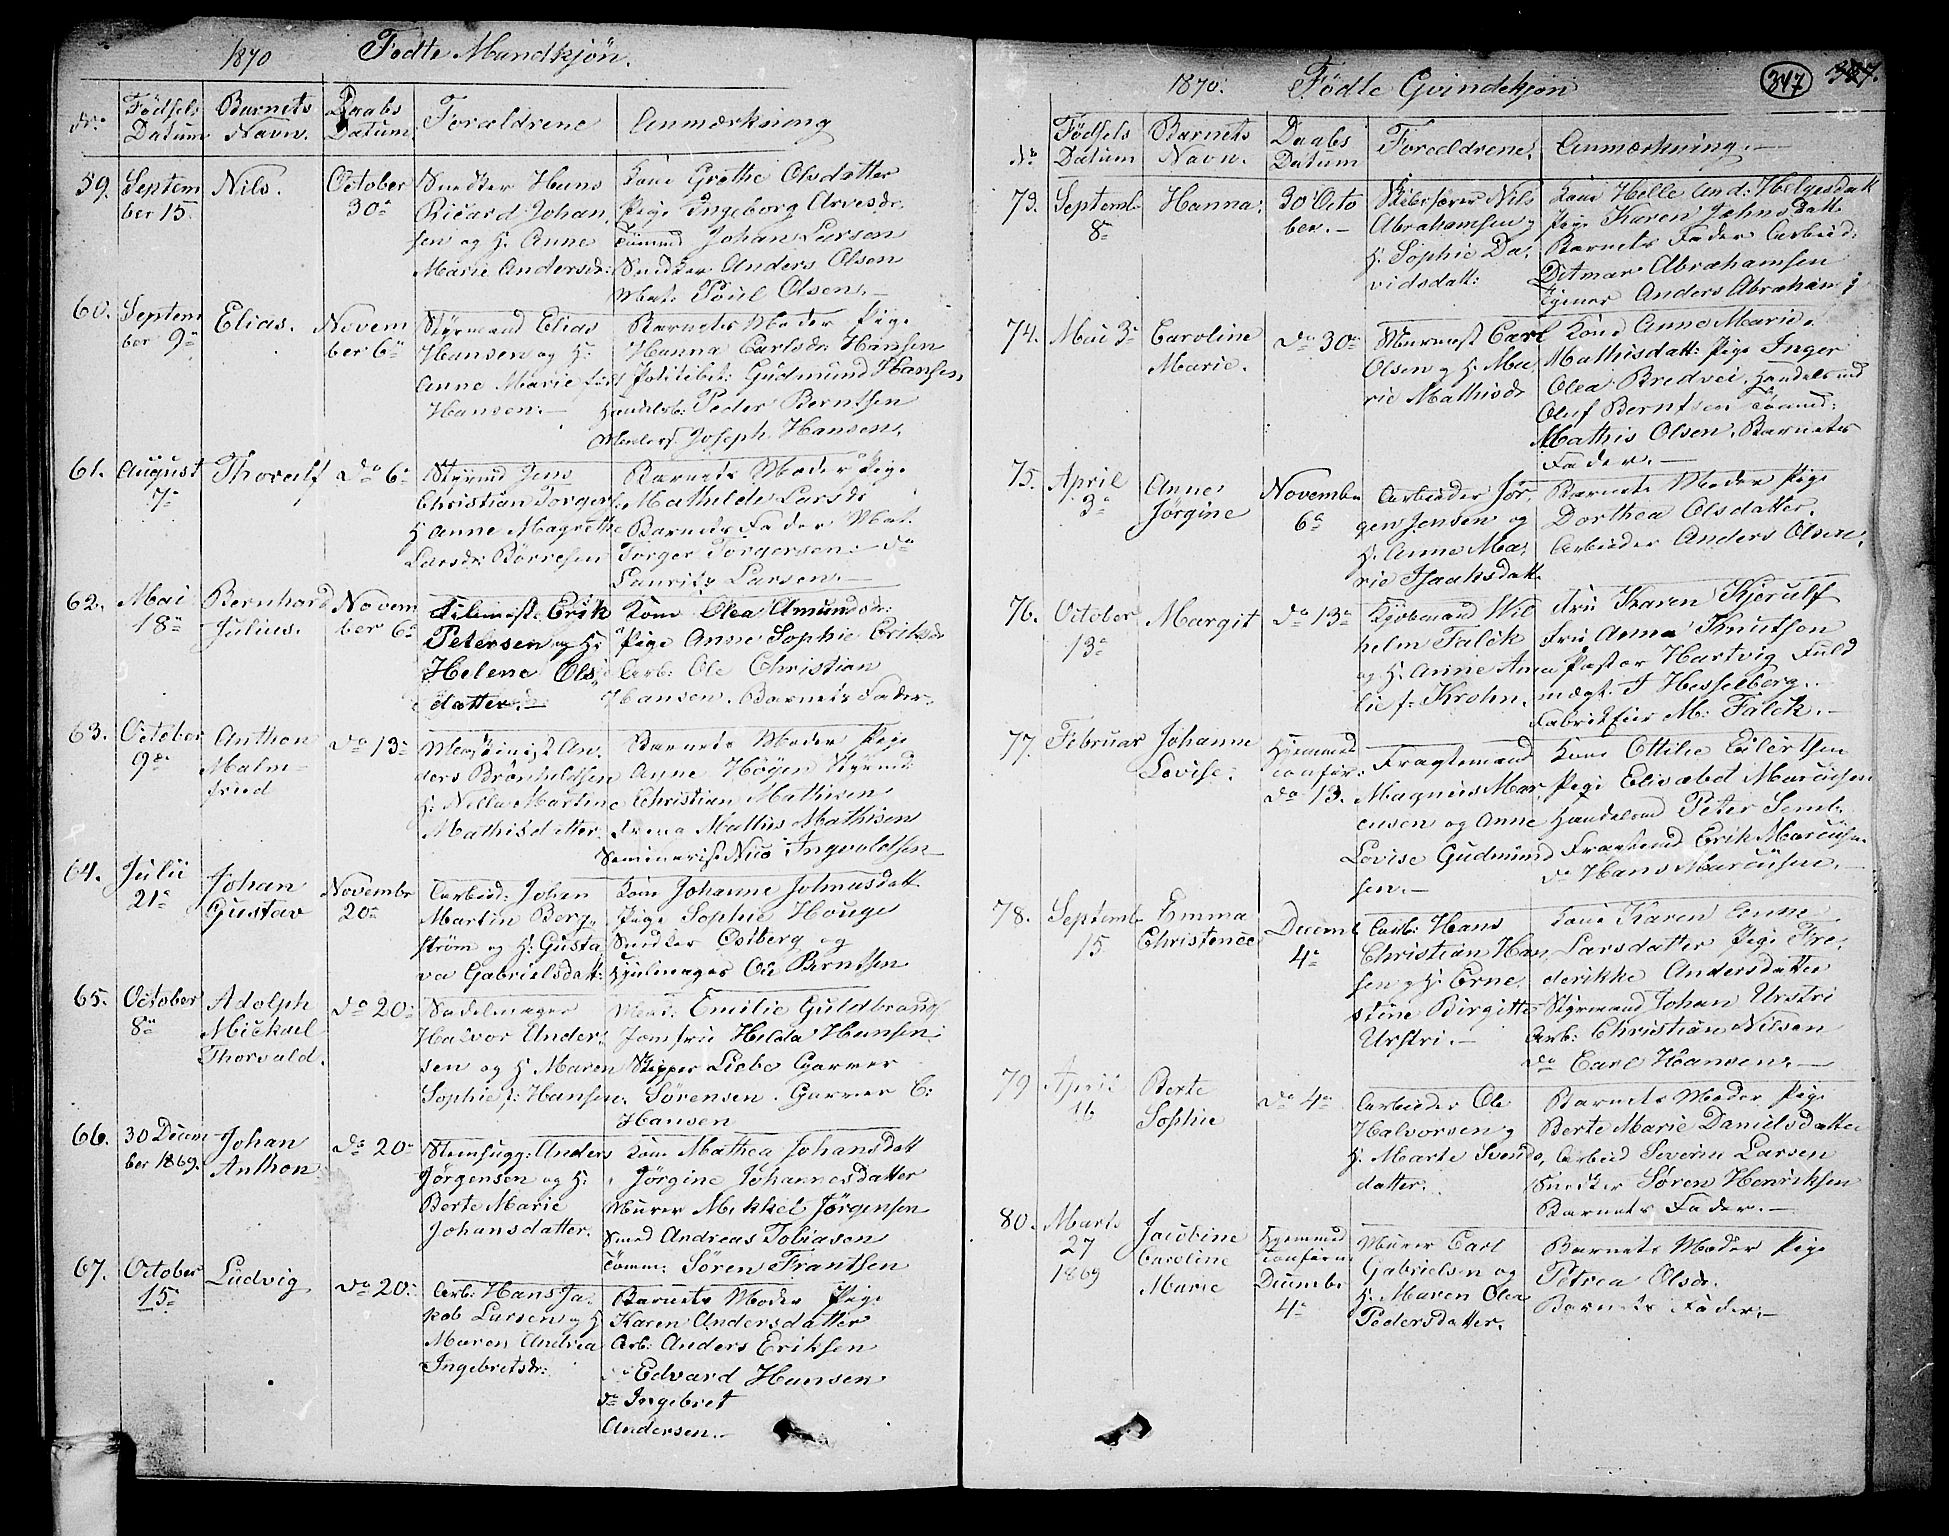 1870 Fødte Mandkjøn.
No. Fødsels Datum Barnets Navn. Daabs Datum. Forældrene Anmærkning
59. September 15. Nils. October 30te
Snedker Hans
Ricard Johan
sen og H. Anne
Marie Andersdr:
Kone Grethe Olsdatter
Pige Ingeborg Arvesdr.
Tømmd Johan Larsen
Snedker Anders Olsen
Mat: Poul Olsen.—
60. September 9de Elias. November 6te
Styrmand Elias
Hansen og H:
Anne Marie f:
Hansen.—
Barnets Moder Pige
Hanna Carlsdr: Hansen
Politibet: Gudmund Hansen,
Handelsb: Peder Berntsen
Joseph Hansen.
61. August 7de Thoralf do 6te
Styrmd Jens
Christian Torger
H Anne Magrethe
Larsdr: Børresen
Barnets Moder Pige
Mathilde Larsdr
Barnets Fader Mat.
Torger Torgersen. do
Lauritz Larsen.—
62. Mai 18de Bernhard Julius. November 6te
Erik
Petersen og H:
Helene Ols
datter.—
Kone Olea Amundsdr:
Pige Anne Sophie Eriksdr
Arb: Ole Christian
Hansen. Barnets Fader.
63. October 9de Anthon Malmfried do 13de
Maskinist An
ders Brønhildsen
H: Nella Martine
Mathisdatter.
Barnets Moder Pige
Anne Høyen Styrmd:
Christian Mathisen
Mathis Mathisen
Seminarist Nils Ingvaldsen
64. Julii 21de Johan Gustav November 20de
Arbeid: Johan
Martin Berg
strøm og H: Gusta
va Gabrielsdatt:
Kone Johanne Johnusdatt
Pige Sophie Houge
Snedker Ostberg og
Hjulmager Ole Berntsen
65. October 8de Adolph Mickael Thorvald. do 20de
Sadelmager
Halvor Ander
sen og H Maren
Sophie f: Hansen.
Mad: Emilie Guldbrands
Jomfru Hilda Hansen
Skipper Liebe Garver
Sørensen. Garver C:
Hansen
66. 30 December 1869. Johan Anthon do 20de
Steenhugg: Anders
Jørgensen og H:
Berte Marie
Johansdatter.
Kone Mathea Johansdatt
Jørgine Johannesdatter
Murer Mikkel Jørgensen
Smed Andreas Tobiasen
Tømm: Søren Frantsen
67. October 15de Ludvig do 20de
Arb: Hans Ja
kob Larsen og H
Maren Andrea
Ingebretsdr:
Barnets Moder Pige
Karen Andersdatter
Arb: Anders Eriksen
Edvard Hansen
do Ingebret
Andersen.—
347 387.
1870. Fødte Qvindekjøn
No Fødsels Datum Barnets Navn. Daabs Datum Forældrene. Anmærkning.—
73. Septemb 8de Hanna. 30 October.—
Nils
Abrahamsen og
H: Sophie Da
vidsdatt:
Kone Helle And: Helgesdatt
Pige Karen Johnsdatt
Barnets Fader Arbeid:
Ditmar Abrahamsen
Anders Abraham
74. Mai 3de Caroline Marie. do 30te
Carl
Olsen og H: Ma
rie Mathisdr
Kone Anne Marie
Mathisdatt: Pige Inger
Olea Bredvei. Handelsmd
Oluf Berntsen Tømmd:
Mathis Olsen. Barnets
Fader.—
75. April 3de Anne Jörgine November 6te
Arbeider Jör
gen Jensen og
H: Anne Ma
rie Isaaksdatt.
Barnets Moder Pige
Dorthea Olsdatter.
Arbeider Anders Olsen.
76. October 13de Margit do 13de
Kjøbmand Wil
helm Falck
og H. Anne Ama
lie f: Krohn.
Fru Karen Kjerulf
Fru Anna Knutson
Pastor Hartvig Fuld
mægt. J Hesselberg.
Fabrikeier M: Falck.—
77. Februar Johanne Lovise. Hjemmed confir: do 13.
Fragtemand
Magnus Mar
cusen og Anne
Lovise Gudmund
sen.—
Kone Ottilie Eilertsen
Pige Elisabet Marcusen
Handelsmd Peter Semb.
Fragtemd Erik Marcusen
do Hans Marcusen.—
78. Septemb 15 Emma Christence Decemb 4de
Arb: Hans
Christian Han
sen og H: Erne
stine Birgitte
Urstri.—
Kone Karen Anne
Larsdatter Pige Fre
derikke Andersdatter
Styrmand Johan Urstri
Arb: Christian Nilsen
do Carl Hansen.—
79 April 16 Berte Sophie do 4de
Arbeider Ole
Halvorsen og
H. Marte Svends
datter.
Barnets Moder Pige
Berte Marie Danielsdatter
Arbeid Severin Larsen
Snedker Søren Henriksen
Barnets Fader.—
80. Marts 27 1869 Jacobine Caroline Marie Hjemmed Confirm Decembr 4de
Murer Carl
Gabrielsen og
H. Maren Olea
Pedersdatter.
Barnets Moder Pige
Petrea Olsdr.
Barnets Fader.—